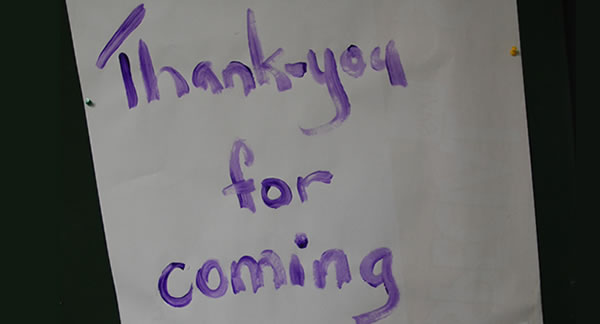 Thank-you
for
coming